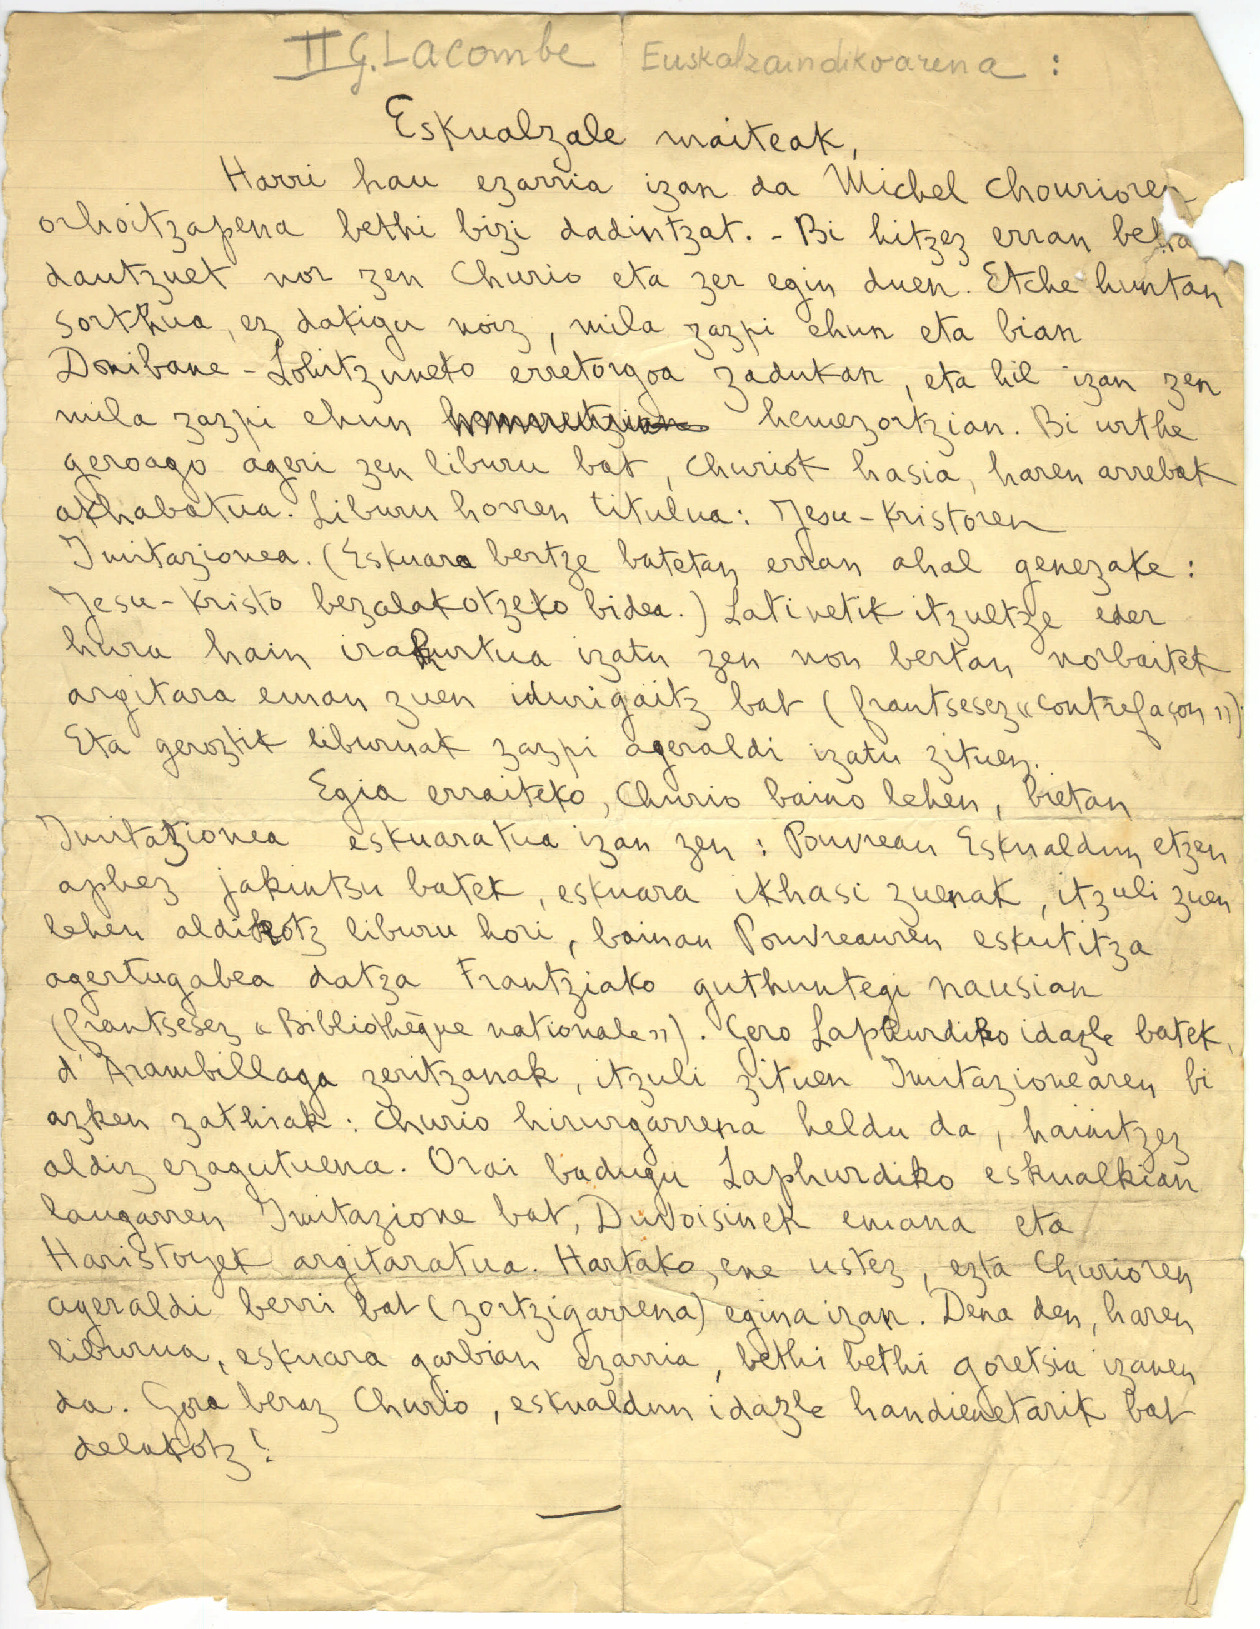 II G. Lacombe Euskaltzaindikoarena :
Eskualzale maiteak,
Harri hau ezarria izan da Michel Chourioren
orhoitzapena bethi bizi dadintzat. - Bi hitzez erran behar
dautzuet nor zen Churio eta zer egin duen. Etche huntan
sorthua, ez dakigu noiz, mila zazpi ehun eta bian
Donibane-Lohitzuneko erretorgoa zadukan, eta hil izan zen
mila zazpi ehun hemezortzian. Bi urthe
geroago ageri zen liburu bat, Churiok hasia, haren arrebak
akhabatua. Liburu horren titulua: Jesu-Kristoren
Imitazionea. (Eskuara bertze batetan erran ahal genezake:
Jesu-Kristo bezalakotzeko bidea.) Latinetik itzultze eder
hura hain irakurtua izatu zen non bertan norbaitek
argitara eman zuen idurigaitz bat (frantsesez «contrefaçon»).
Eta geroztik liburuak zazpi ageraldi izatu zituen.
Egia erraiteko, Churio baino lehen, bietan
Imitazionea eskuaratua izan zen: Pouvreau Eskualdun etzen
aphez jakintsu batek, eskuara ikhasi zuenak, itzuli zuen
lehen aldikotz liburu hori, bainan Pouvreauren eskutitza
agertugabea datza Frantziako guthuntegi nausian
(frantsesez «Bibliothèque nationale»). Gero Laphurdiko idazle batek,
d'Arambillaga zeritzanak, itzuli zituen Imitazionearen bi
azken zathiak: Churio hirurgarrena heldu da, hainitzez
aldiz ezagutuena. Orai badugu Laphurdiko eskualkian
laugarren Imitazione bat, Duvoisinek emana eta
Haristoyek argitaratua. Hartako, ene ustez, ezta Churioren
ageraldi berri bat (zortzigarrena) egina izan. Dena den, haren
liburua, eskuara garbian ezarria, bethi bethi goretsia izanen
da. Gora beraz Churio, eskualdun idazle handienetarik bat
delakotz!